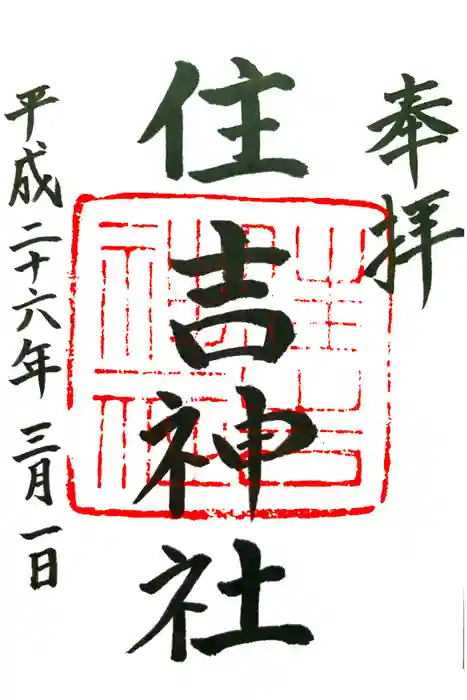 奉拝
住吉神社
平成二十六年三月一日